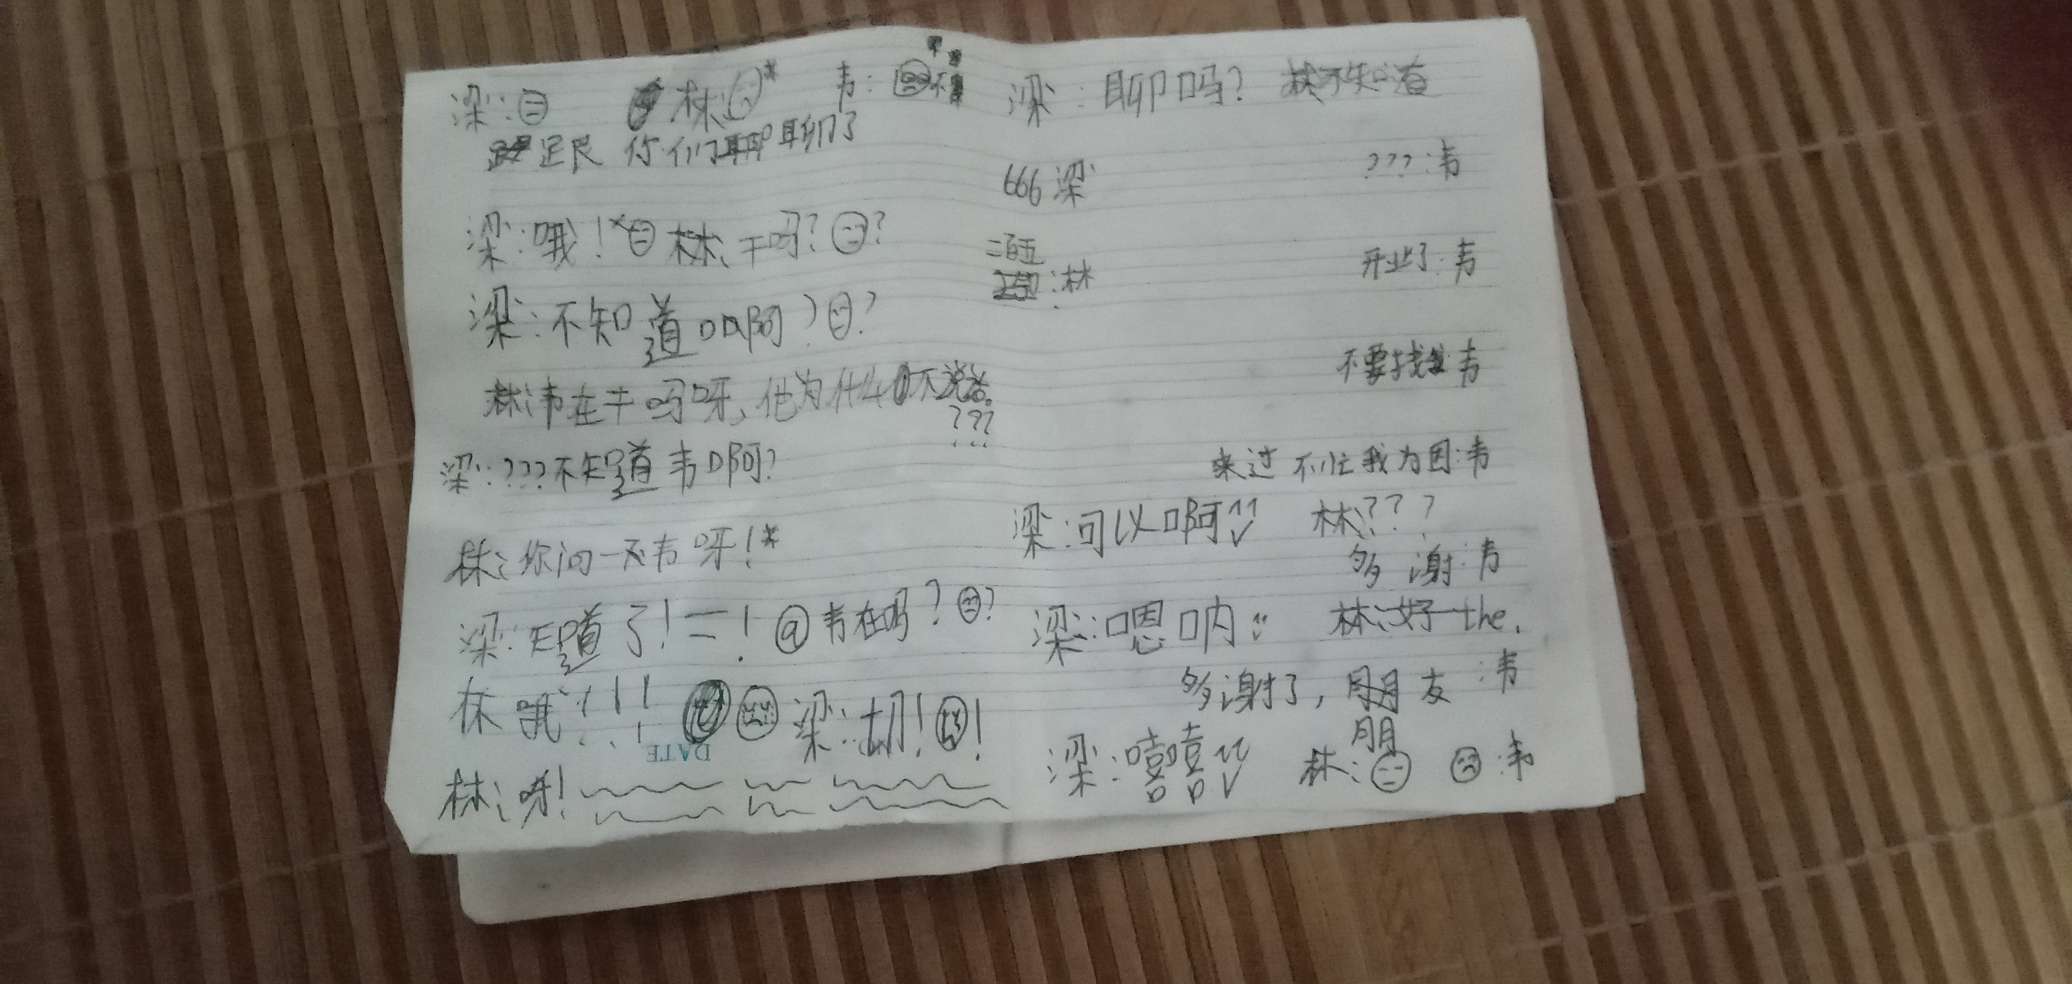 梁： 林： 韦：不
跟你们聊聊了
梁：哦！林：干吗？？
梁：不知道啊？？
林：韦在干吗呀，他为什么不说话。
???
梁：???不知道韦啊？
林：你问一下韦呀！
梁：知道了！二！@韦在吗？？
林：哦！！！ 梁：切！！
林：呀！
DATE
梁：聊吗？
???：韦
666梁
二百五
250：林
开业了：韦
不要找：韦
来过 不忙我为因：韦
梁：可以啊 林：???
多谢：韦
梁：嗯呐： 林：好the.
多谢了，朋友：韦
朋
梁：嘻嘻 林： ：韦